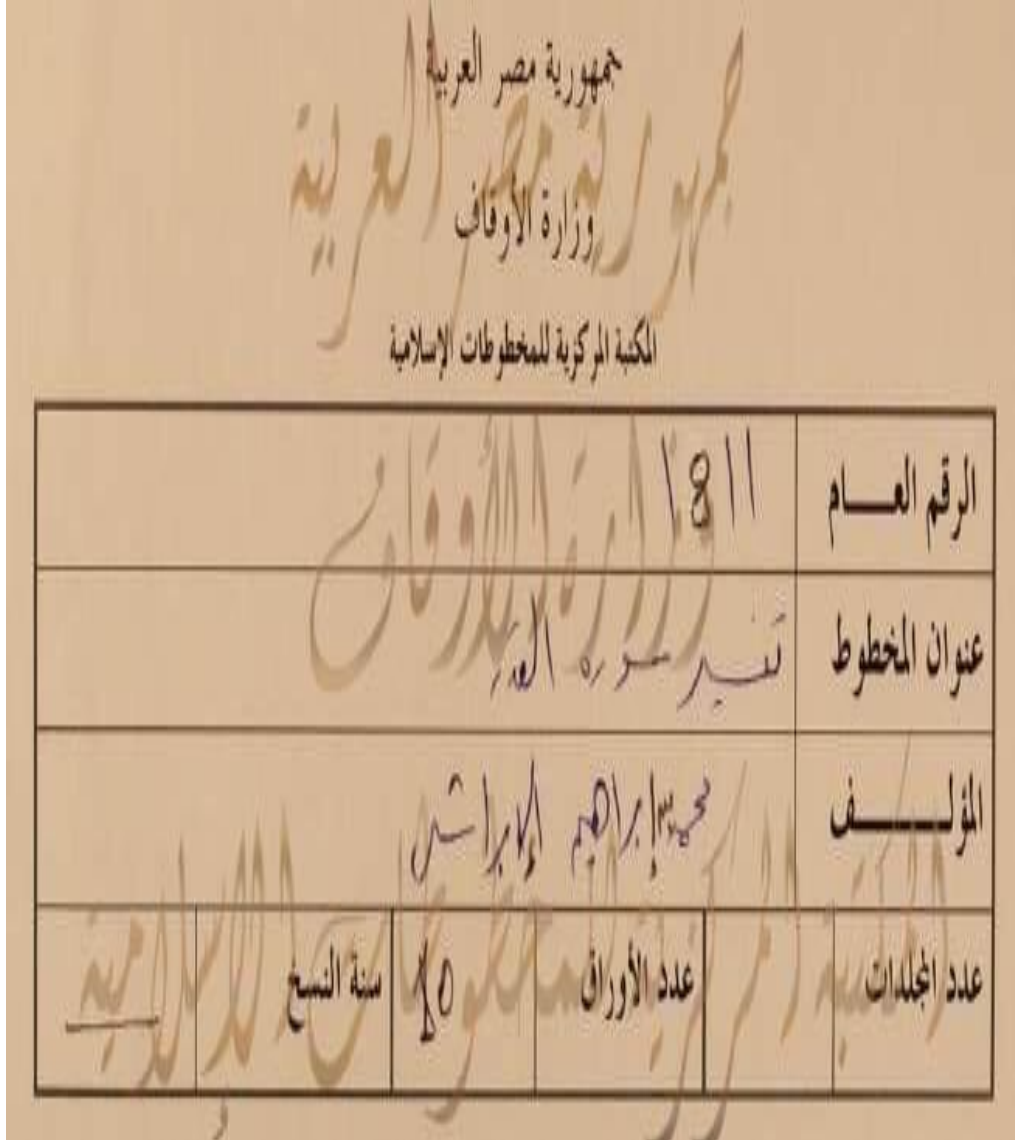 جمهورية مصر العربية
وزارة الأوقاف
المكتبة المركزية للمخطوطات الإسلامية
الرقم العــــام
عنوان المخطوط تفسير سورة القدر
المؤلــــــف محمد إبراهيم الإبراشى
عدد المجلدات
عدد الأوراق
سنة النسخ
جمهورية مصر العربية
وزارة الأوقاف
المكتبة المركزية للمخطوطات الإسلامية